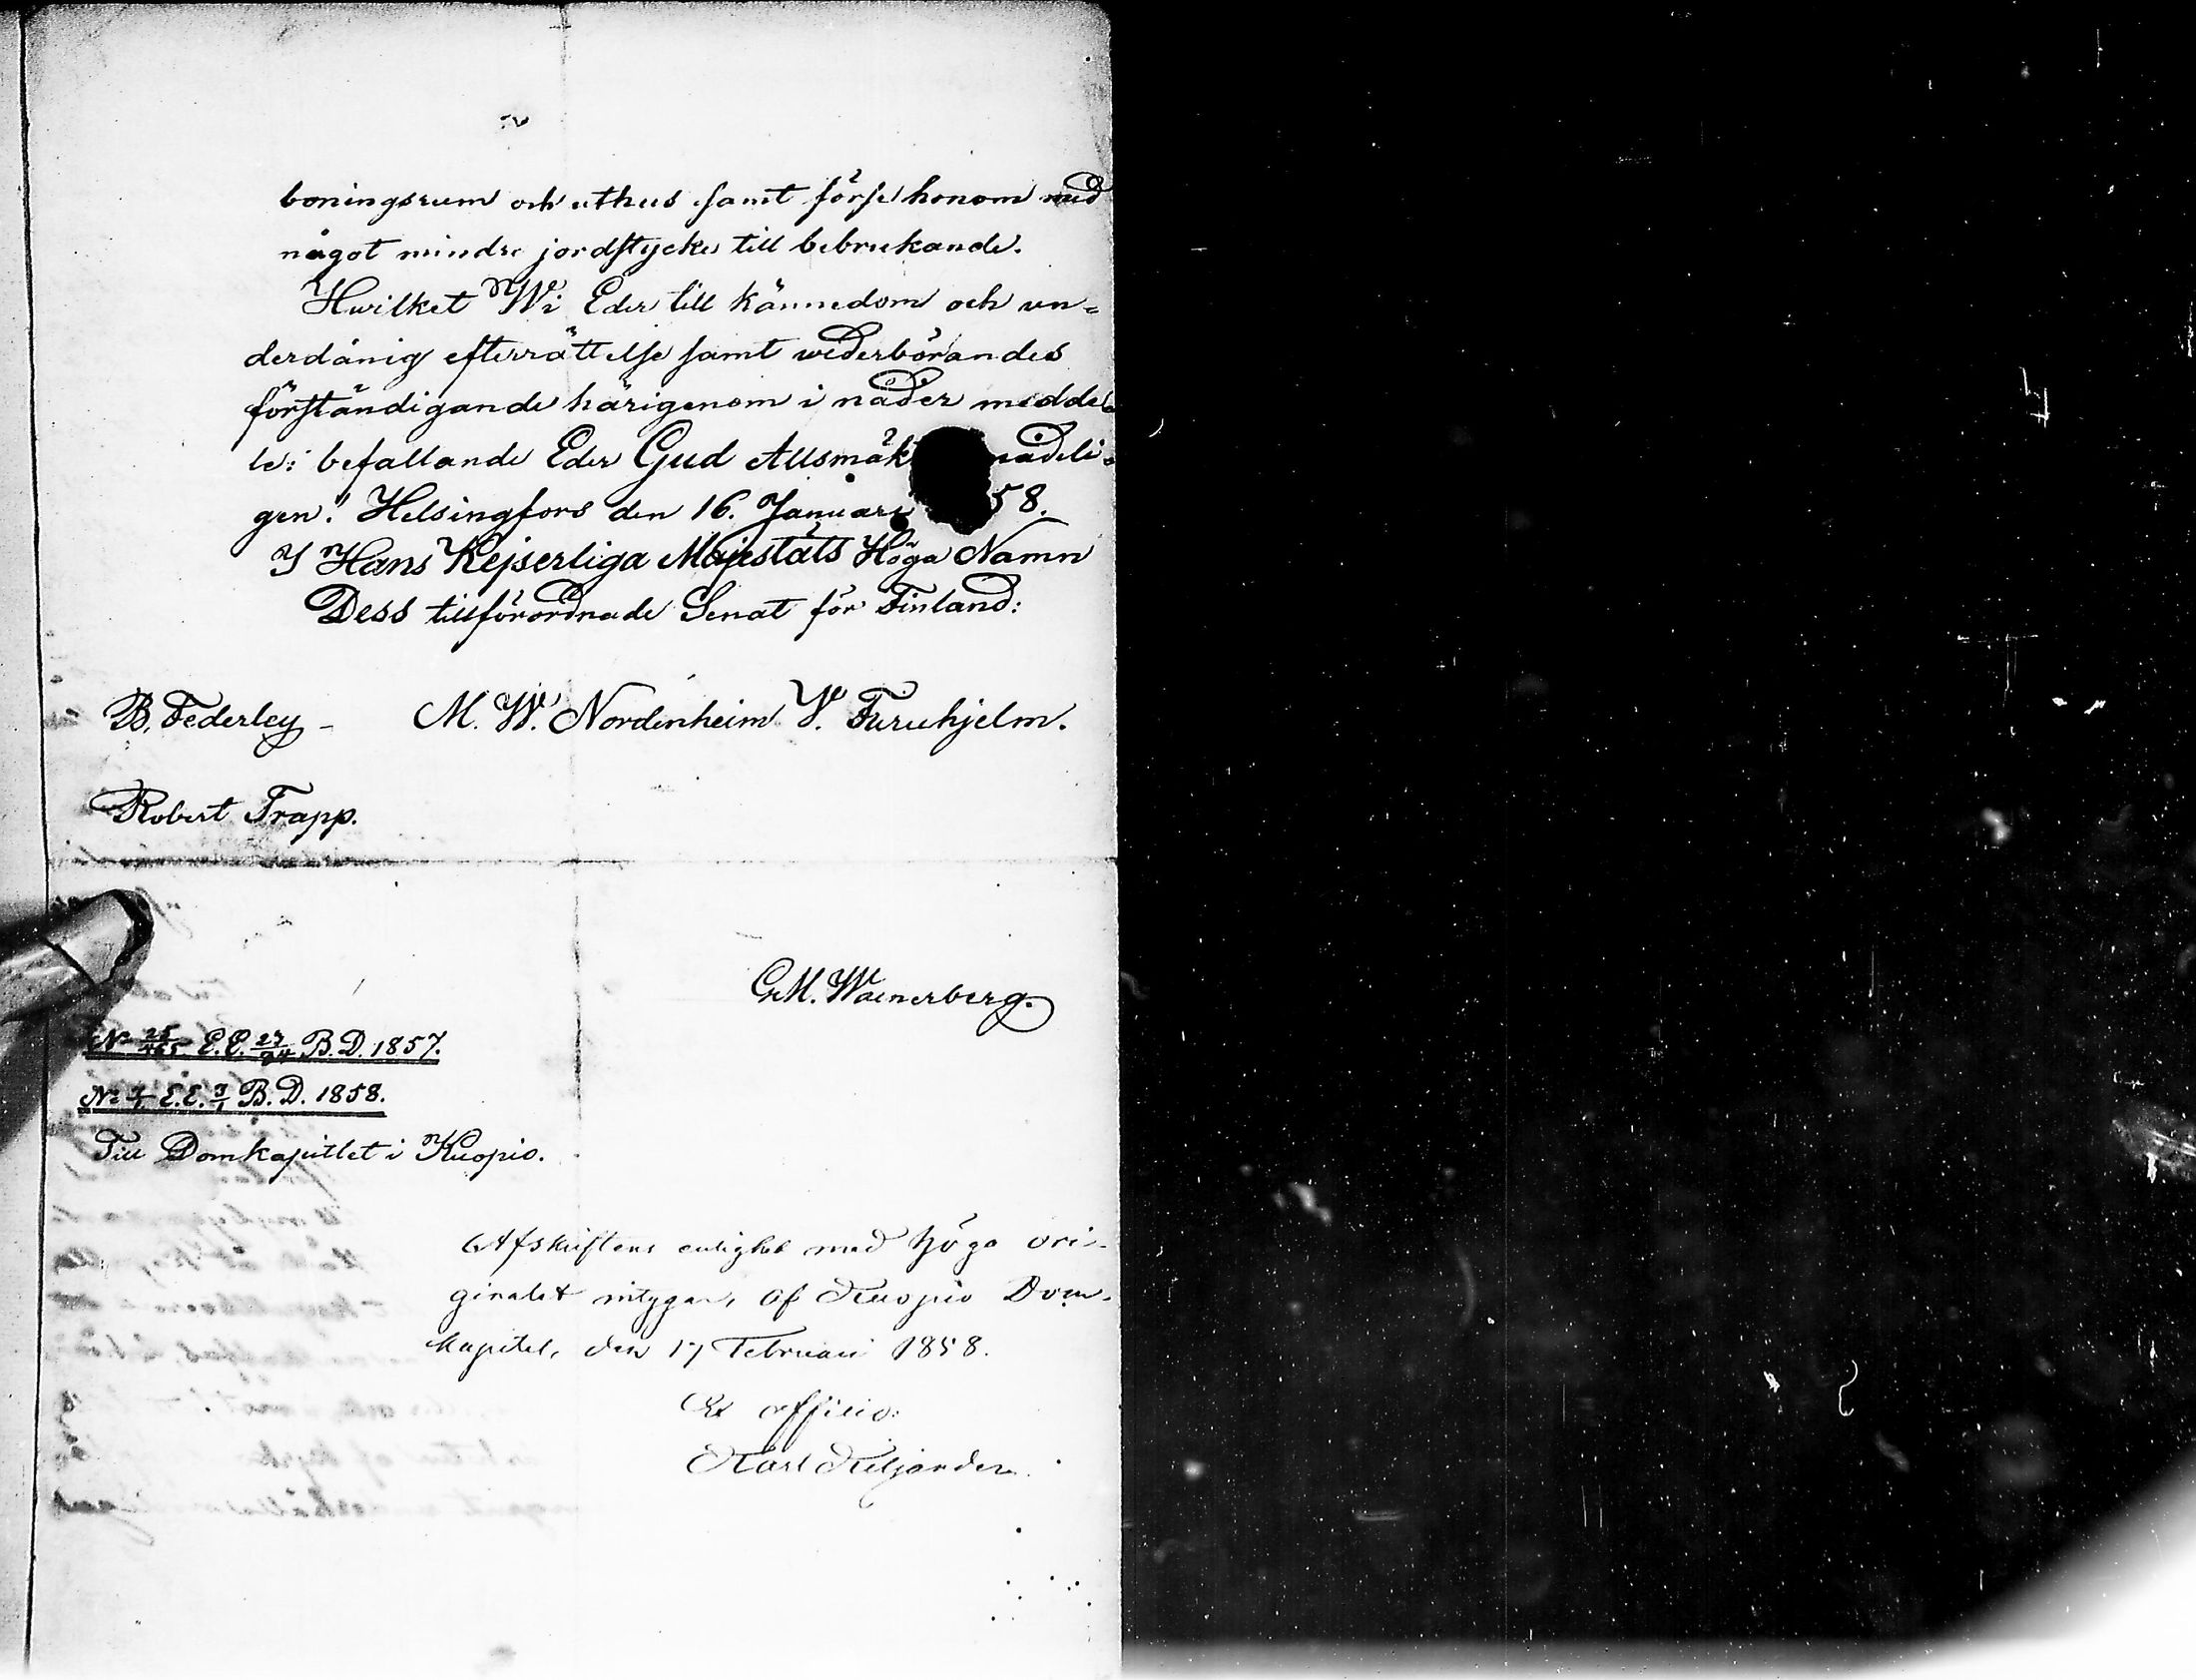 boningsrum och uthus samt förse honom med
något mindre jordstycke till bebrukande.
Hwilket Wi Eder till kännedom och un-
derdånig efterrättelse samt wederbörandes
förständigande härigenom i nåder medde-
le: befallande Eder Gud Allsmäk nådeli-
gen! Helsingfors den 16. Januari 58.
I Hans Kejserliga Majestäts Höga Namn
Dess tillförordnade Senat för Finland:
B. Federley - M. W. Nordenheim V. Furuhjelm.
Robert Trapp.
G. M. Waenerberg.
No 25/465 E.E. B.D. 1857.
No E.E. B.D. 1858.
Till Domkapitlet i Kuopio.
Afskriftens enlighet med höga ori-
ginalet intygar, af Kuopio Dom-
kapitel, den 17 Februari 1858.
Ex officio:
Karl Kiljander.